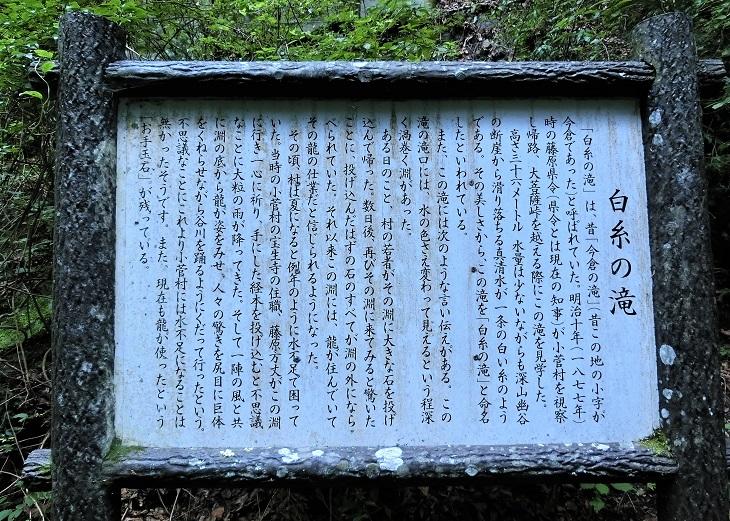 白糸の滝
「白糸の滝」は、昔「今倉の滝」「昔この地の小字が
今倉であった」と呼ばれていた。明治十年(一八七七年)
時の藤原県令「県令とは現在の知事」が小菅村を視察
し帰路、大菩薩峠を越える際にこの滝を見学した。
高さ三十六メートル 水量は少ないながらも深山幽谷
の断崖から滑り落ちる真清水が一条の白い糸のよう
である。その美しさから、この滝を「白糸の滝」と命名
したといわれている。
また、この滝には次のような言い伝えがある。この
滝の滝口には、水の色さえ変わって見えるという程深
く渦巻く淵があった。
ある日のこと、村の若者がその淵に大きな石を投げ
込んで帰った。数日後、再びその淵に来てみると驚いた
ことに、投げ込んだはずの石のすべてが淵の外になら
べられていた。それ以来この淵には、龍が住んでいて
その龍の仕業だと信じられるようになった。
その頃、村は夏になると例年のように水不足で困って
いた。当時の小菅村の宝生寺の住職、藤原方丈がこの淵
に行き一心に祈り、手にした経本を投げ込むと不思議
なことに大粒の雨が降ってきた。そして一陣の風と共
に淵の底から龍が姿をみせ、人々の驚きを尻目に巨体
をくねらせながら谷川を踊るようにくだって行ったという。
不思議なことにこれより小菅村には水不足になることは
無かったそうです。また、現在も龍が使ったという
「お手玉石」が残っている。